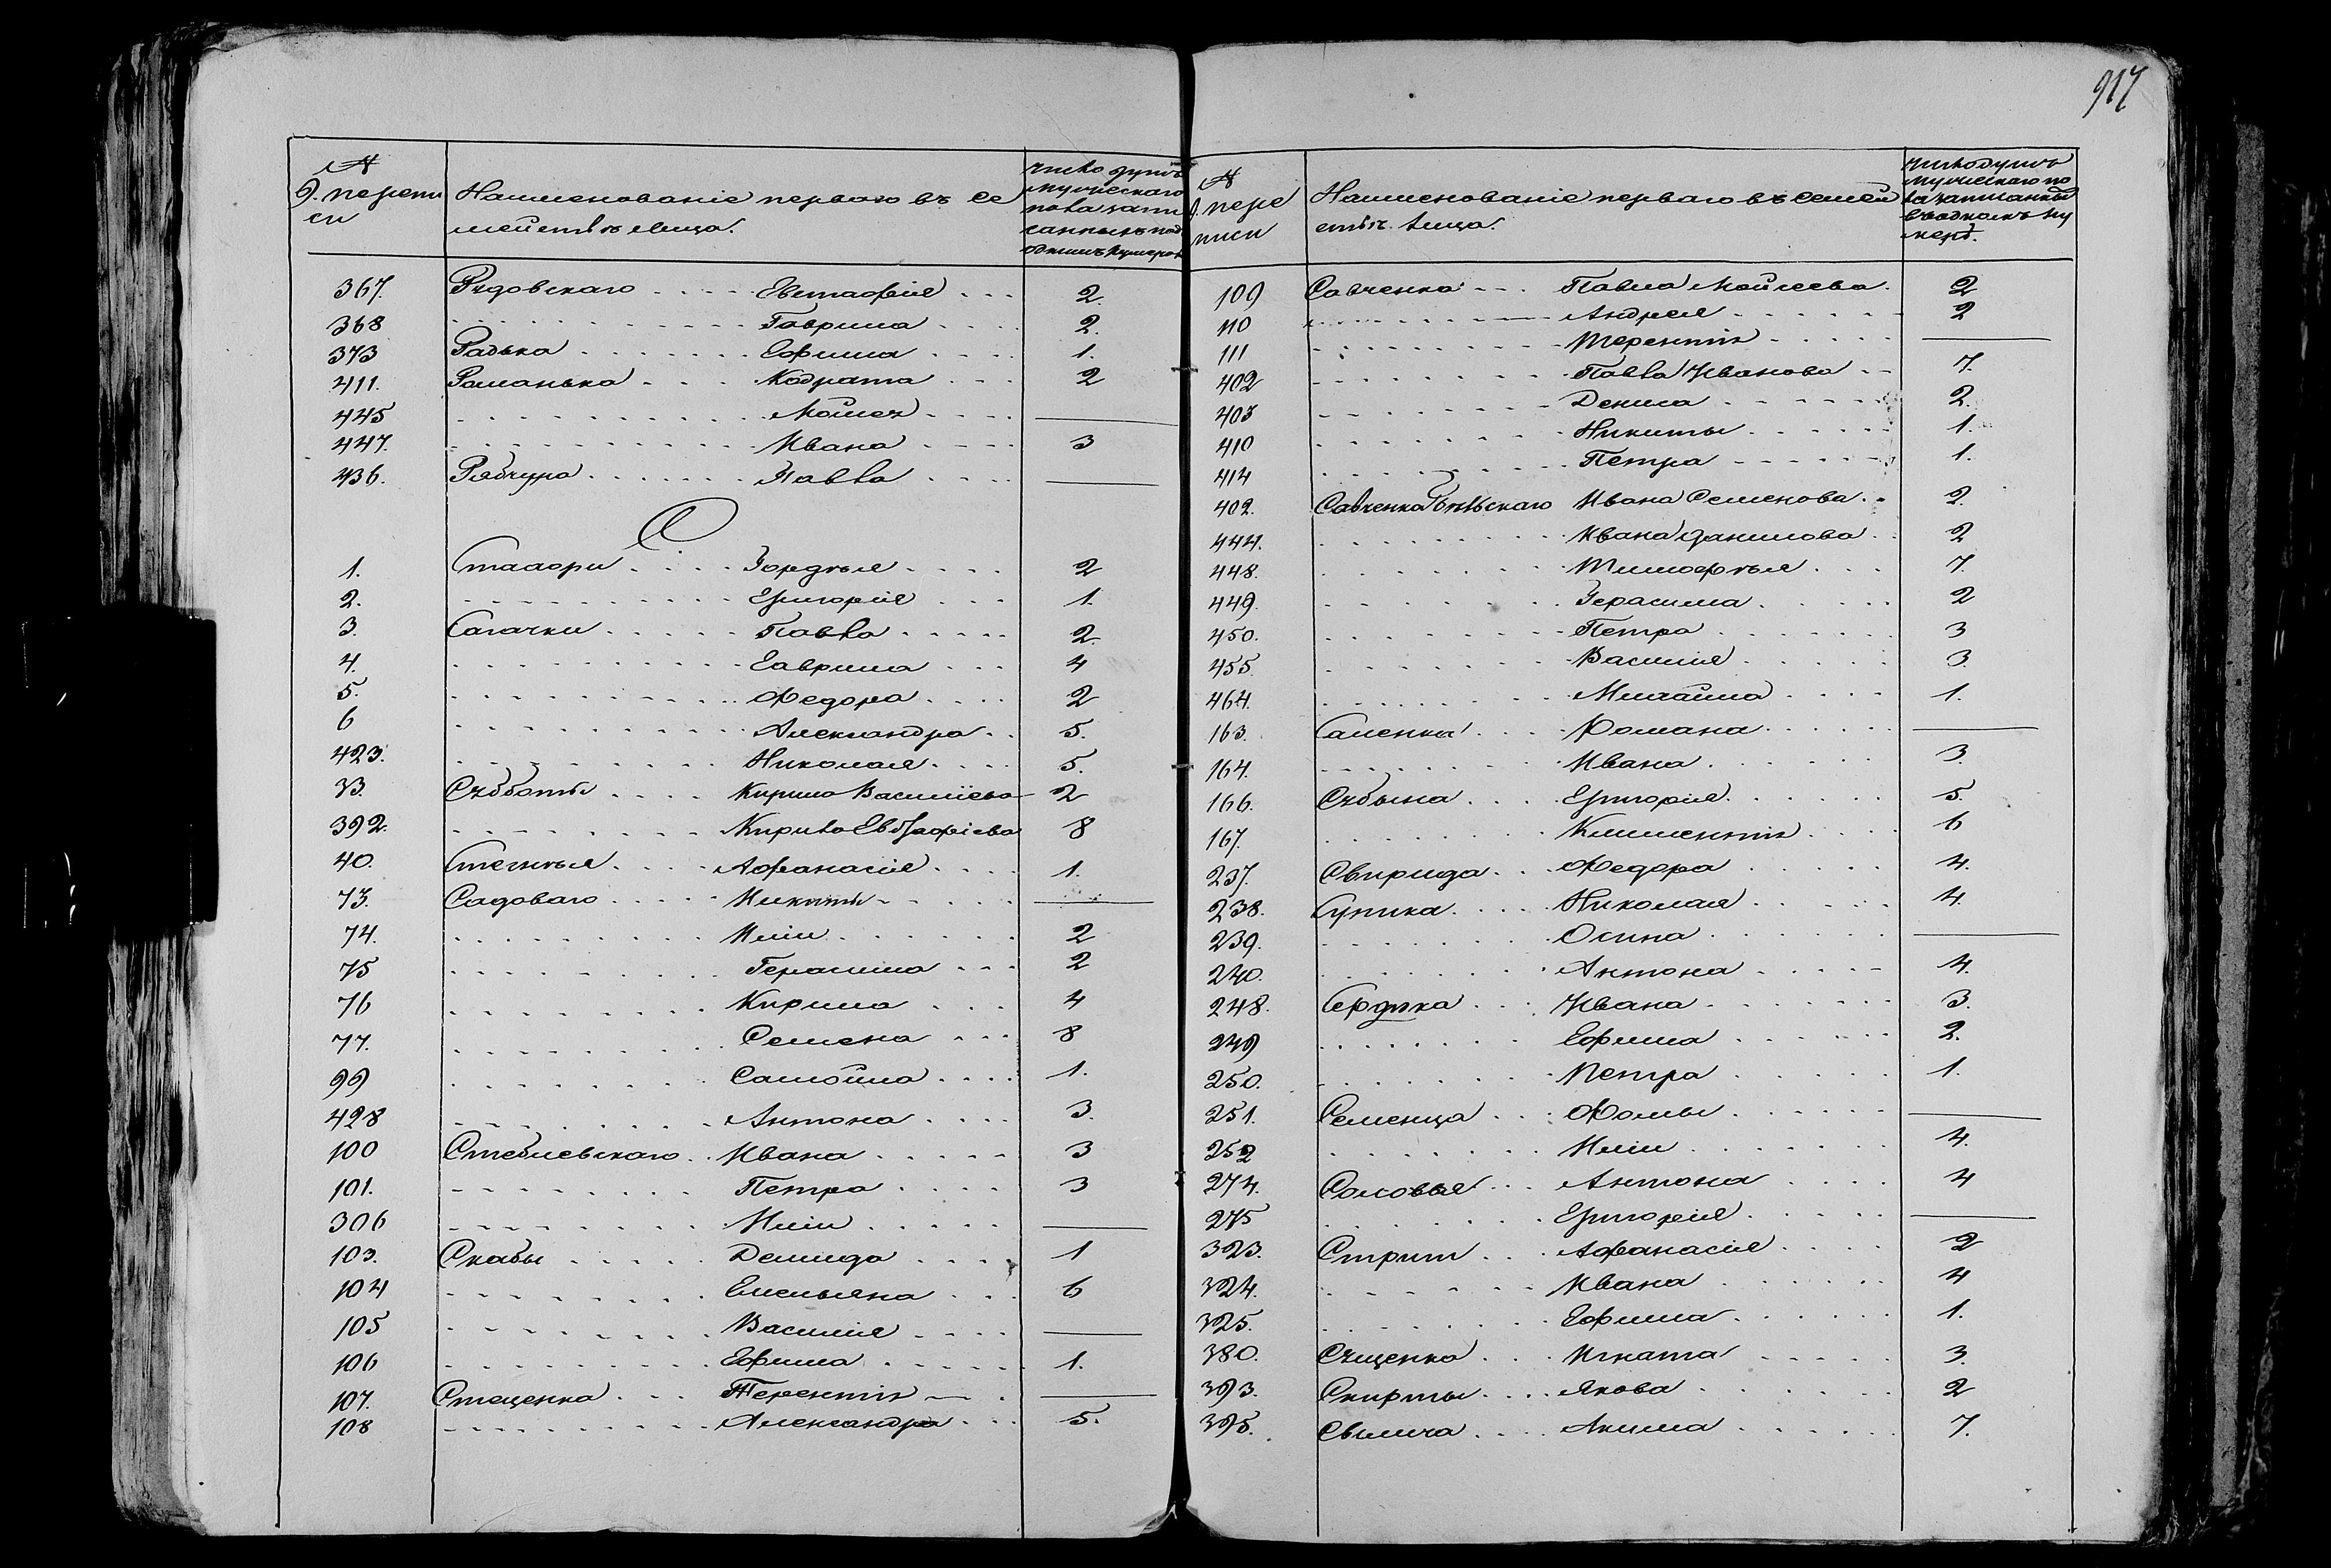 917
№ 9. перепи
си
Наименованіе перваго въ се
мействѣ лица.
число душъ
мужескаго
пола запи
санныхъ подъ
однимъ нумеромъ
367. Рудовскаго Евстафія 2.
368 Гаврила 2.
373 Радька Ефима 1.
411. Романька Кодрата 2
445 Мойсея —
447. Ивана 3
436. Рябчура Павла —
С
1. Гордѣя 2
2. Григорія 1.
3. Сагачки Павла 2.
4. Гаврила 4
5. Федора 2
6 Александра 5.
423. Николая 5.
33. Субботы Кирила Василіева 2
392. Кирила Евстафіева 8
40. Стегнѣя Афанасія 1.
73. Садоваго Никиты —
74. Иліи 2
75 Герасима 2
76 Кирила 4
77. Семена 8
99 Самойла 1.
428 Антона 3.
100 Стеблевскаго Ивана 3
101. Петра 3
306 Иліи —
103. Скабы Демида 1
104 Емельяна 6
105 Василія —
106 Ефима 1.
107. Стеценка Терентія —
108 Александра 5.
№ 9. пере
писи
Наименованіе перваго въ семей
ствѣ лица.
число душъ
мужескаго по
ла записанныхъ
въ одномъ ну
мерѣ.
109 Савченка Павла Мойсеева 2
110 Андрея 2
111 Терентія —
402 Павла Иванова 7.
403 Данила 2.
410 Никиты 1.
414 Петра 1.
402. Савченка Бѣльскаго Ивана Семенова 2.
444. Ивана Данилова 2
448. Тимофѣя 7.
449. Герасима 2
450. Петра 3
455. Василія 3.
464. Михайла 1.
163. Саленка Романа —
164. Ивана 3.
166. Субына Григорія 5.
167. Климентія 6
237. Свирида Федора 4.
238. Супика Николая 4.
239. Осипа —
240. Антона 4.
248. Сердюка Ивана 3.
249 Ефима 2.
250. Петра 1.
251. Семенца Фомы —
252 Иліи 4.
274. Соловья Антона 4
275 Григорія —
323. Стрити Афанасія 2
324. Ивана 4
325. Ефима 1.
380. Сущенка Игната 3.
393. Скирты Якова 2
395. Свыгича Акима 7.